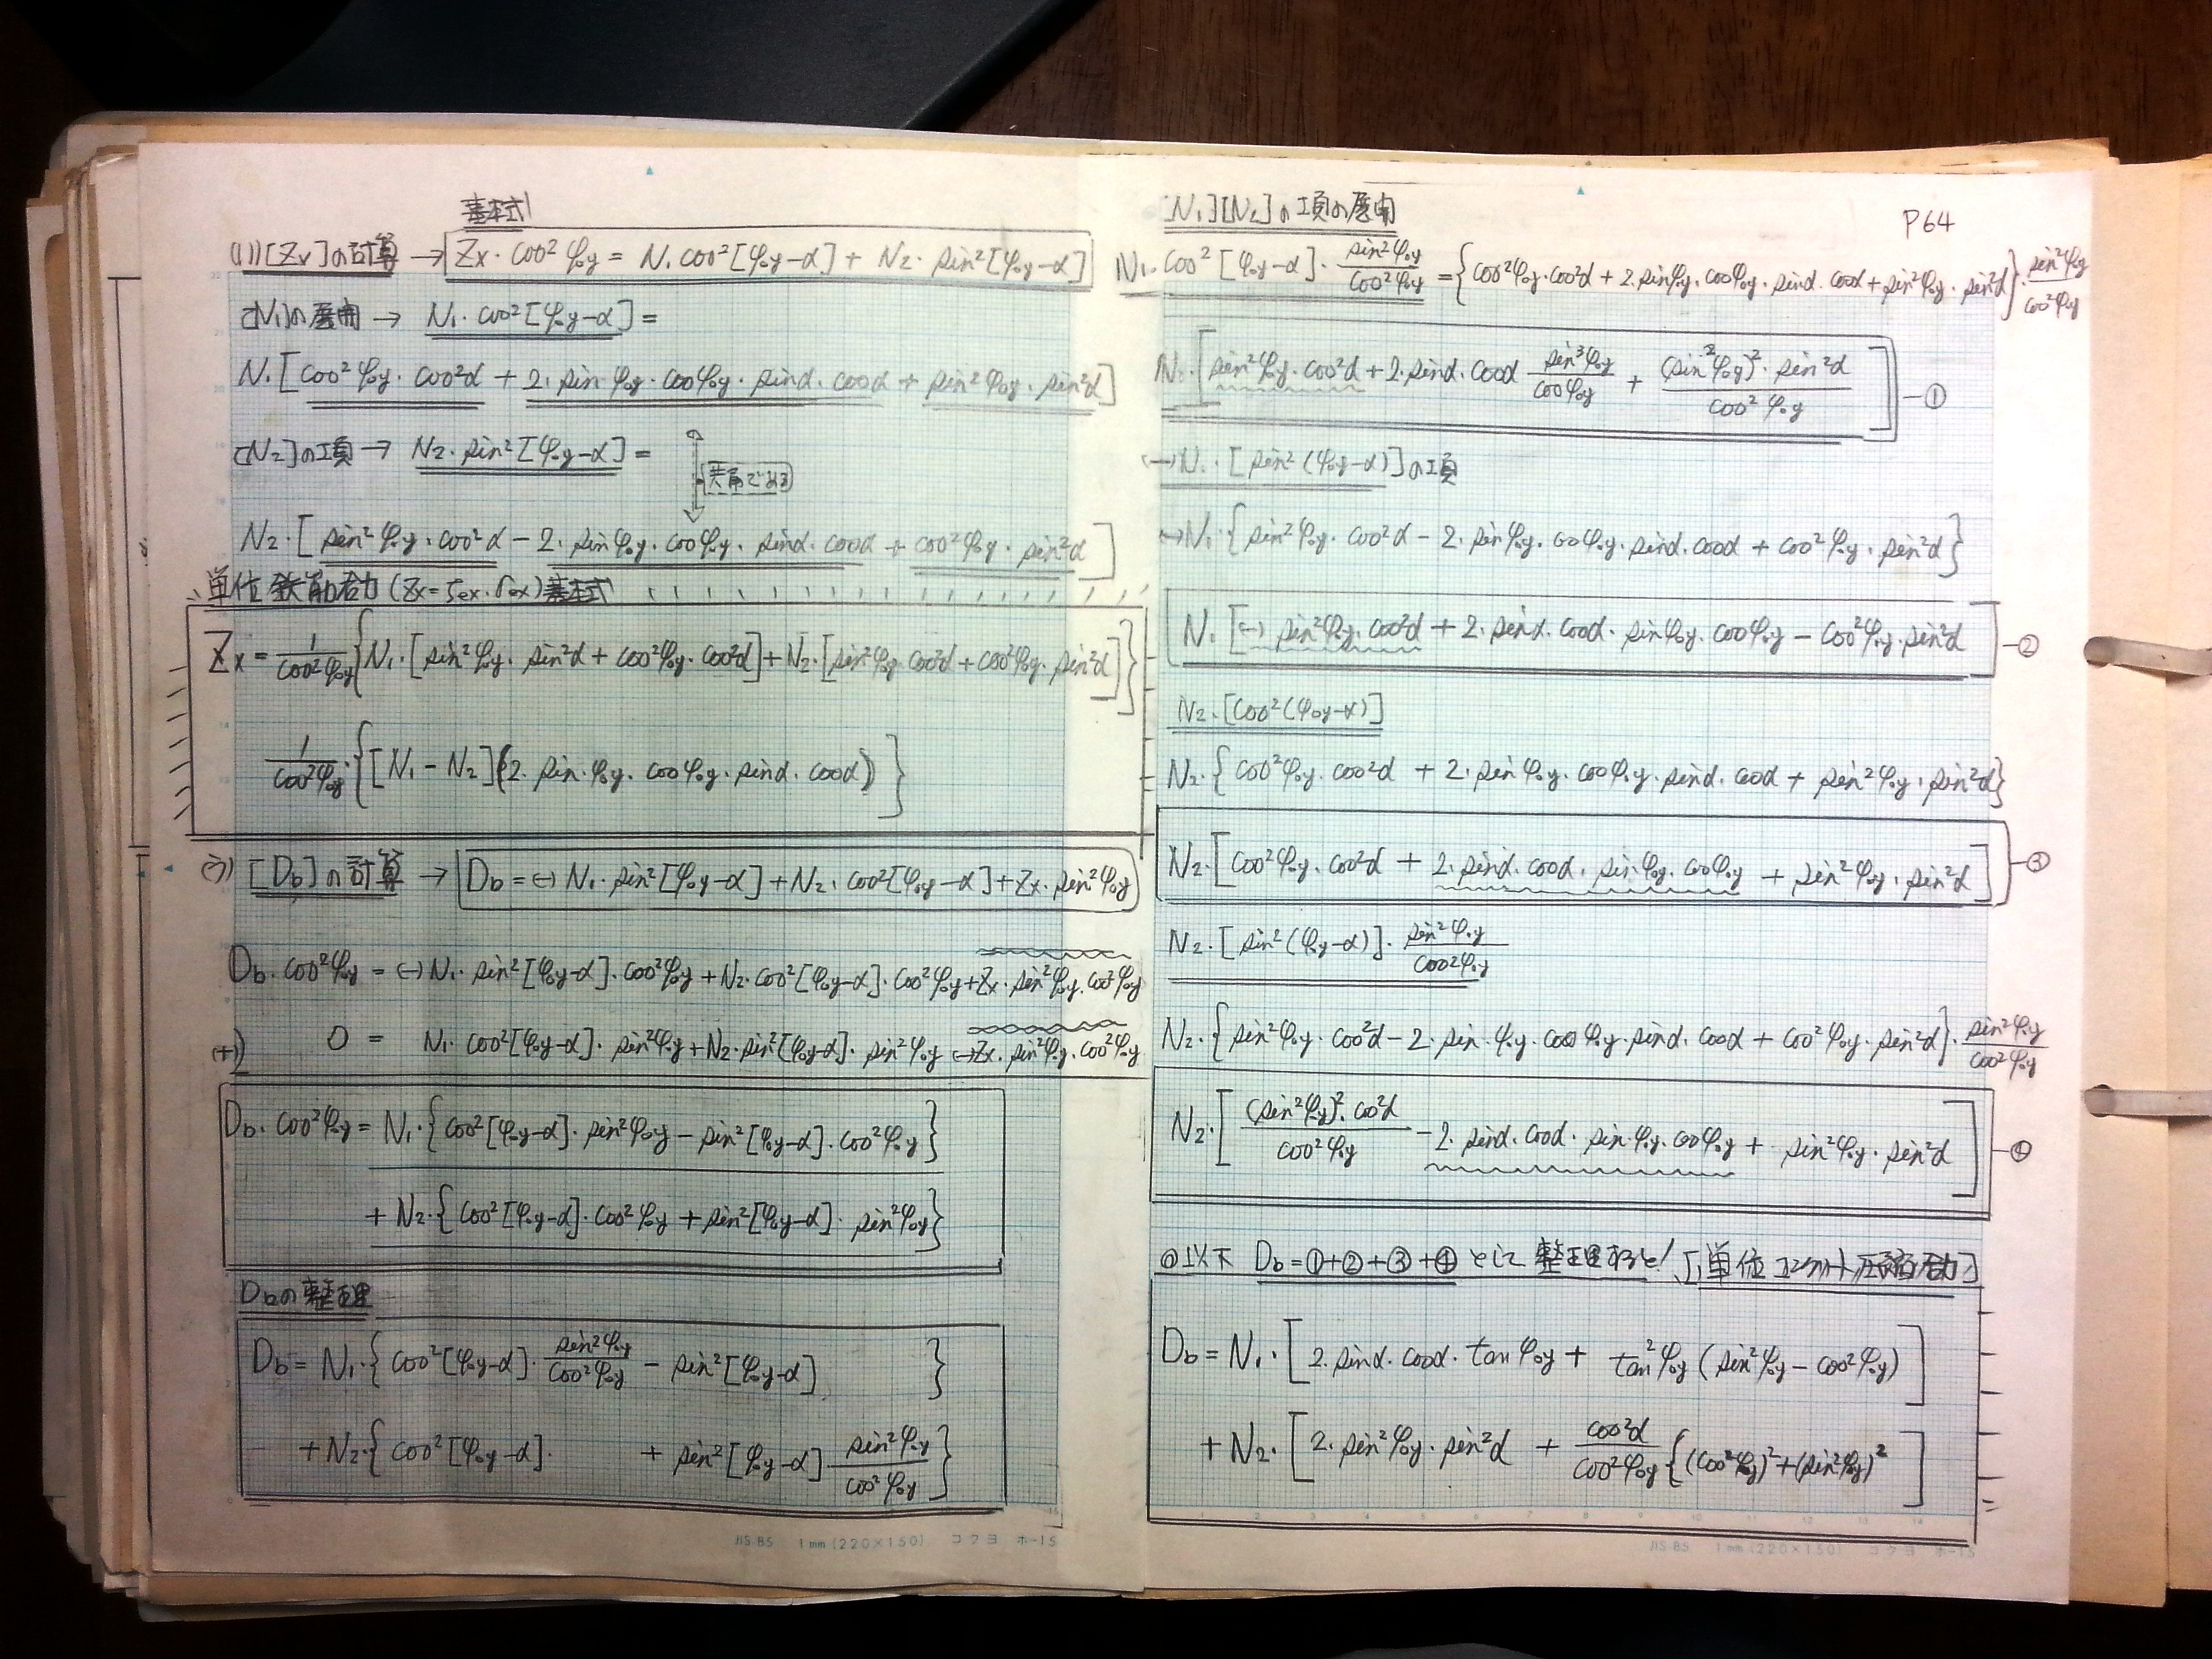 基本式
(1)[Zx]の計算 → Zx・cos²φoy = N₁cos²[φoy-α] + N₂・sin²[φoy-α]
[N₁]の展開 → N₁・cos²[φoy-α] =
N₁[cos²φoy・cos²α + 2・sinφoy・cosφoy・sinα・cosα + sin²φoy・sin²α]
[N₂]の項 → N₂・sin²[φoy-α] =
共角である
N₂・[sin²φoy・cos²α - 2・sinφoy・cosφoy・sinα・cosα + cos²φoy・sin²α]
単位鉄筋応力 基本式
Zx = 1/cos²φoy {N₁・[sin²φoy・sin²α + cos²φoy・cos²α] + N₂・[sin²φoy・cos²α + cos²φoy・sin²α]}
1/cos²φoy・{[N₁-N₂](2・sin・φoy・cosφoy・sinα・cosα)}
[Db]の計算 → Db = (-)N₁・sin²[φoy-α] + N₂・cos²[φoy-α] + Zx・sin²φoy
Db・cos²φoy = (-)N₁・sin²[φoy-α]・cos²φoy + N₂・cos²[φoy-α]・cos²φoy + Zx・sin²φoy・cos²φoy
(+) 0 = N₁・cos²[φoy-α]・sin²φoy + N₂・sin²[φoy-α]・sin²φoy (-)Zx・sin²φoy・cos²φoy
Db・cos²φoy = N₁・{cos²[φoy-α]・sin²φoy - sin²[φoy-α]・cos²φoy}
+ N₂・{cos²[φoy-α]・cos²φoy + sin²[φoy-α]・sin²φoy}
Dbの整理
Db = N₁・{cos²[φoy-α]・sin²φoy/cos²φoy - sin²[φoy-α]}
+ N₂・{cos²[φoy-α]・ + sin²[φoy-α]・sin²φoy/cos²φoy}
JIS-B5 1mm(220×150) コクヨ ホ-15
[N₁][N₂]の項の展開
P64
N₁・cos²[φoy-α]・sin²φoy/cos²φoy = {cos²φoy・cos²α + 2・sinφoy・cosφoy・sinα・cosα + sin²φoy・sin²α}・sin²φoy/cos²φoy
N₁・[sin²φoy・cos²α + 2・sinα・cosα sin³φoy/cosφoy + (sin²φoy)²・sin²α/cos²φoy] ―①
(-)N₁・[sin²(φoy-α)]の項
(-)N₁・{sin²φoy・cos²α - 2・sinφoy・cosφoy・sinα・cosα + cos²φoy・sin²α}
N₁[(-)sin²φoy・cos²α + 2・sinα・cosα・sinφoy・cosφoy - cos²φoy・sin²α] ―②
N₂・[cos²(φoy-α)]
N₂・{cos²φoy・cos²α + 2・sinφoy・cosφoy・sinα・cosα + sin²φoy・sin²α}
N₂・[cos²φoy・cos²α + 2・sinα・cosα・sinφoy・cosφoy + sin²φoy・sin²α] ―③
N₂・[sin²(φoy-α)]・sin²φoy/cos²φoy
N₂・{sin²φoy・cos²α - 2・sin・φoy・cosφoy・sinα・cosα + cos²φoy・sin²α}・sin²φoy/cos²φoy
N₂・[(sin²φoy)²・cos²α/cos²φoy - 2・sinα・cosα・sinφoy・cosφoy + sin²φoy・sin²α] ―④
◎以下 Db=①+②+③+④として整理すると! [単位コンクリート圧縮応力]
Db = N₁・[2・sinα・cosα・tanφoy + tan²φoy(sin²φoy - cos²φoy)]
+ N₂・[2・sin²φoy・sin²α + cos²α/cos²φoy{(cos²φoy)²+(sin²φoy)²]
JIS-B5 1mm(220×150) コクヨ ホ-15